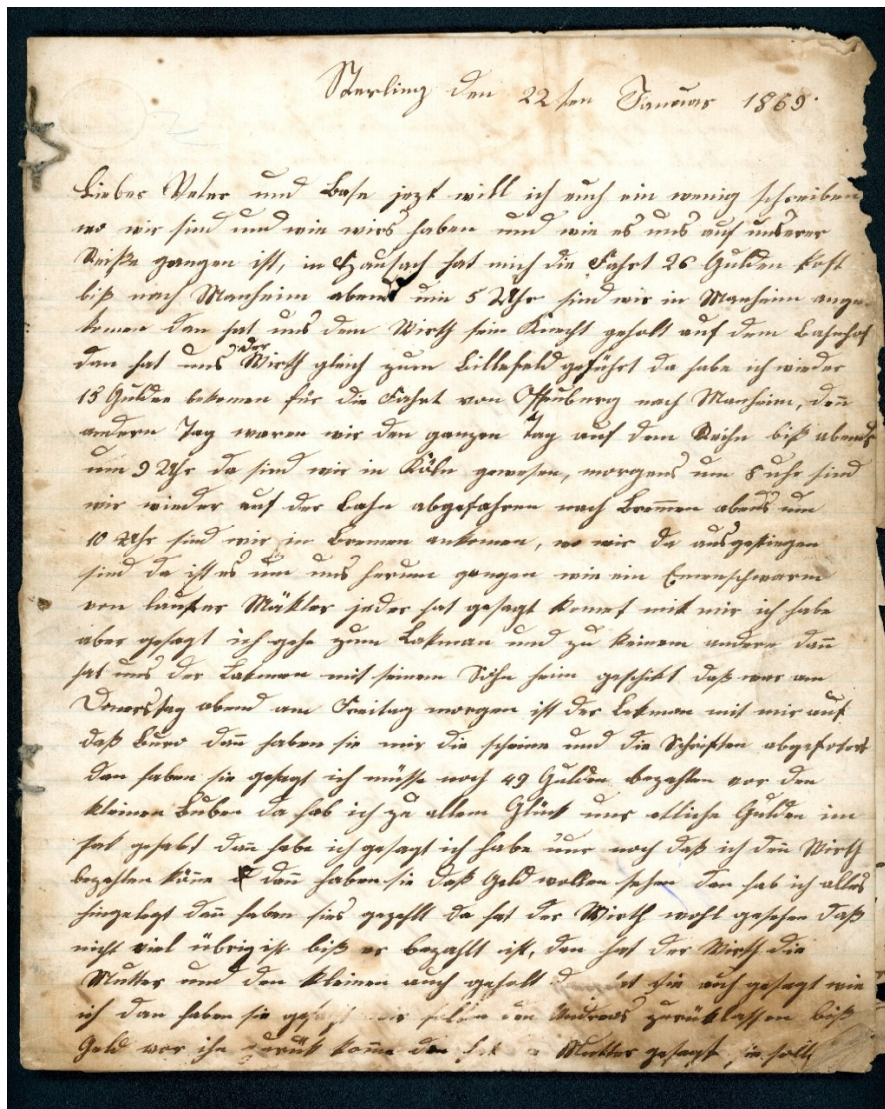 Sterling den 22ten Januar 1869.
Lieber Veter und Base jezt will ich euch ein wenig schreiben
wo wir sind und wie wirs haben und wie es uns auf unserer
Reiße gangen ist, in Hausach hat mich die Fahrt 26 Gulden kost
biß nach Manheim abend um 5 Uhr sind wir in Manheim ange-
komen dan hat uns dem Wirth sein Knecht geholt auf dem Bahnhof
dan hat uns der Wirth gleich zum Billefeld geführt da habe ich wieder
15 Gulden bekomen für die Fahrt von Offenburg nach Manheim, den
andern Tag waren wir den ganzen Tag auf dem Reihn biß abends
um 9 Uhr da sind wir in Köln gewesen, morgens um 8 uhr sind
wir wieder auf der Bahn abgefahren nach Bremen abends um
10 Uhr sind wir in Bremen ankomen, wo wir da ausgestiegen
sind da ist es um uns herum gangen wie ein Emenschwarm
von lauter Mäkler jeder hat gesagt komet mit mir ich habe
aber gesagt ich gehe zum Lakman und zu keinem andern dan
hat uns der Lakman mit seinem Sohn heim geschikt daß war am
Donerstag abend am Freitag morgen ist der Lakman mit mir auf
daß Büro dan haben sie mir die scheine und die Schriften abgefodert
dan haben sie gesagt ich müsse noch 49 Gulden bezahlen vor den
kleinen Buben da hab ich zu allem Glück nur etliche Gulden im
sak gehabt dan habe ich gesagt ich habe nur noch daß ich den Wirth
bezahlen köne dan haben sie daß Geld wollen sehen dan hab ich alles
hingelegt dan haben sies gezehlt da hat der Wirth wohl gesehen daß
nicht viel übrig ist biß er bezahlt ist, dan hat der Wirth die
Mutter und den kleinen auch geholt die auch gesagt wie
ich dan haben sie den Andreas zurüklassen biß
Geld vor ihn zurük kome Mutter gesagt, sie sollt